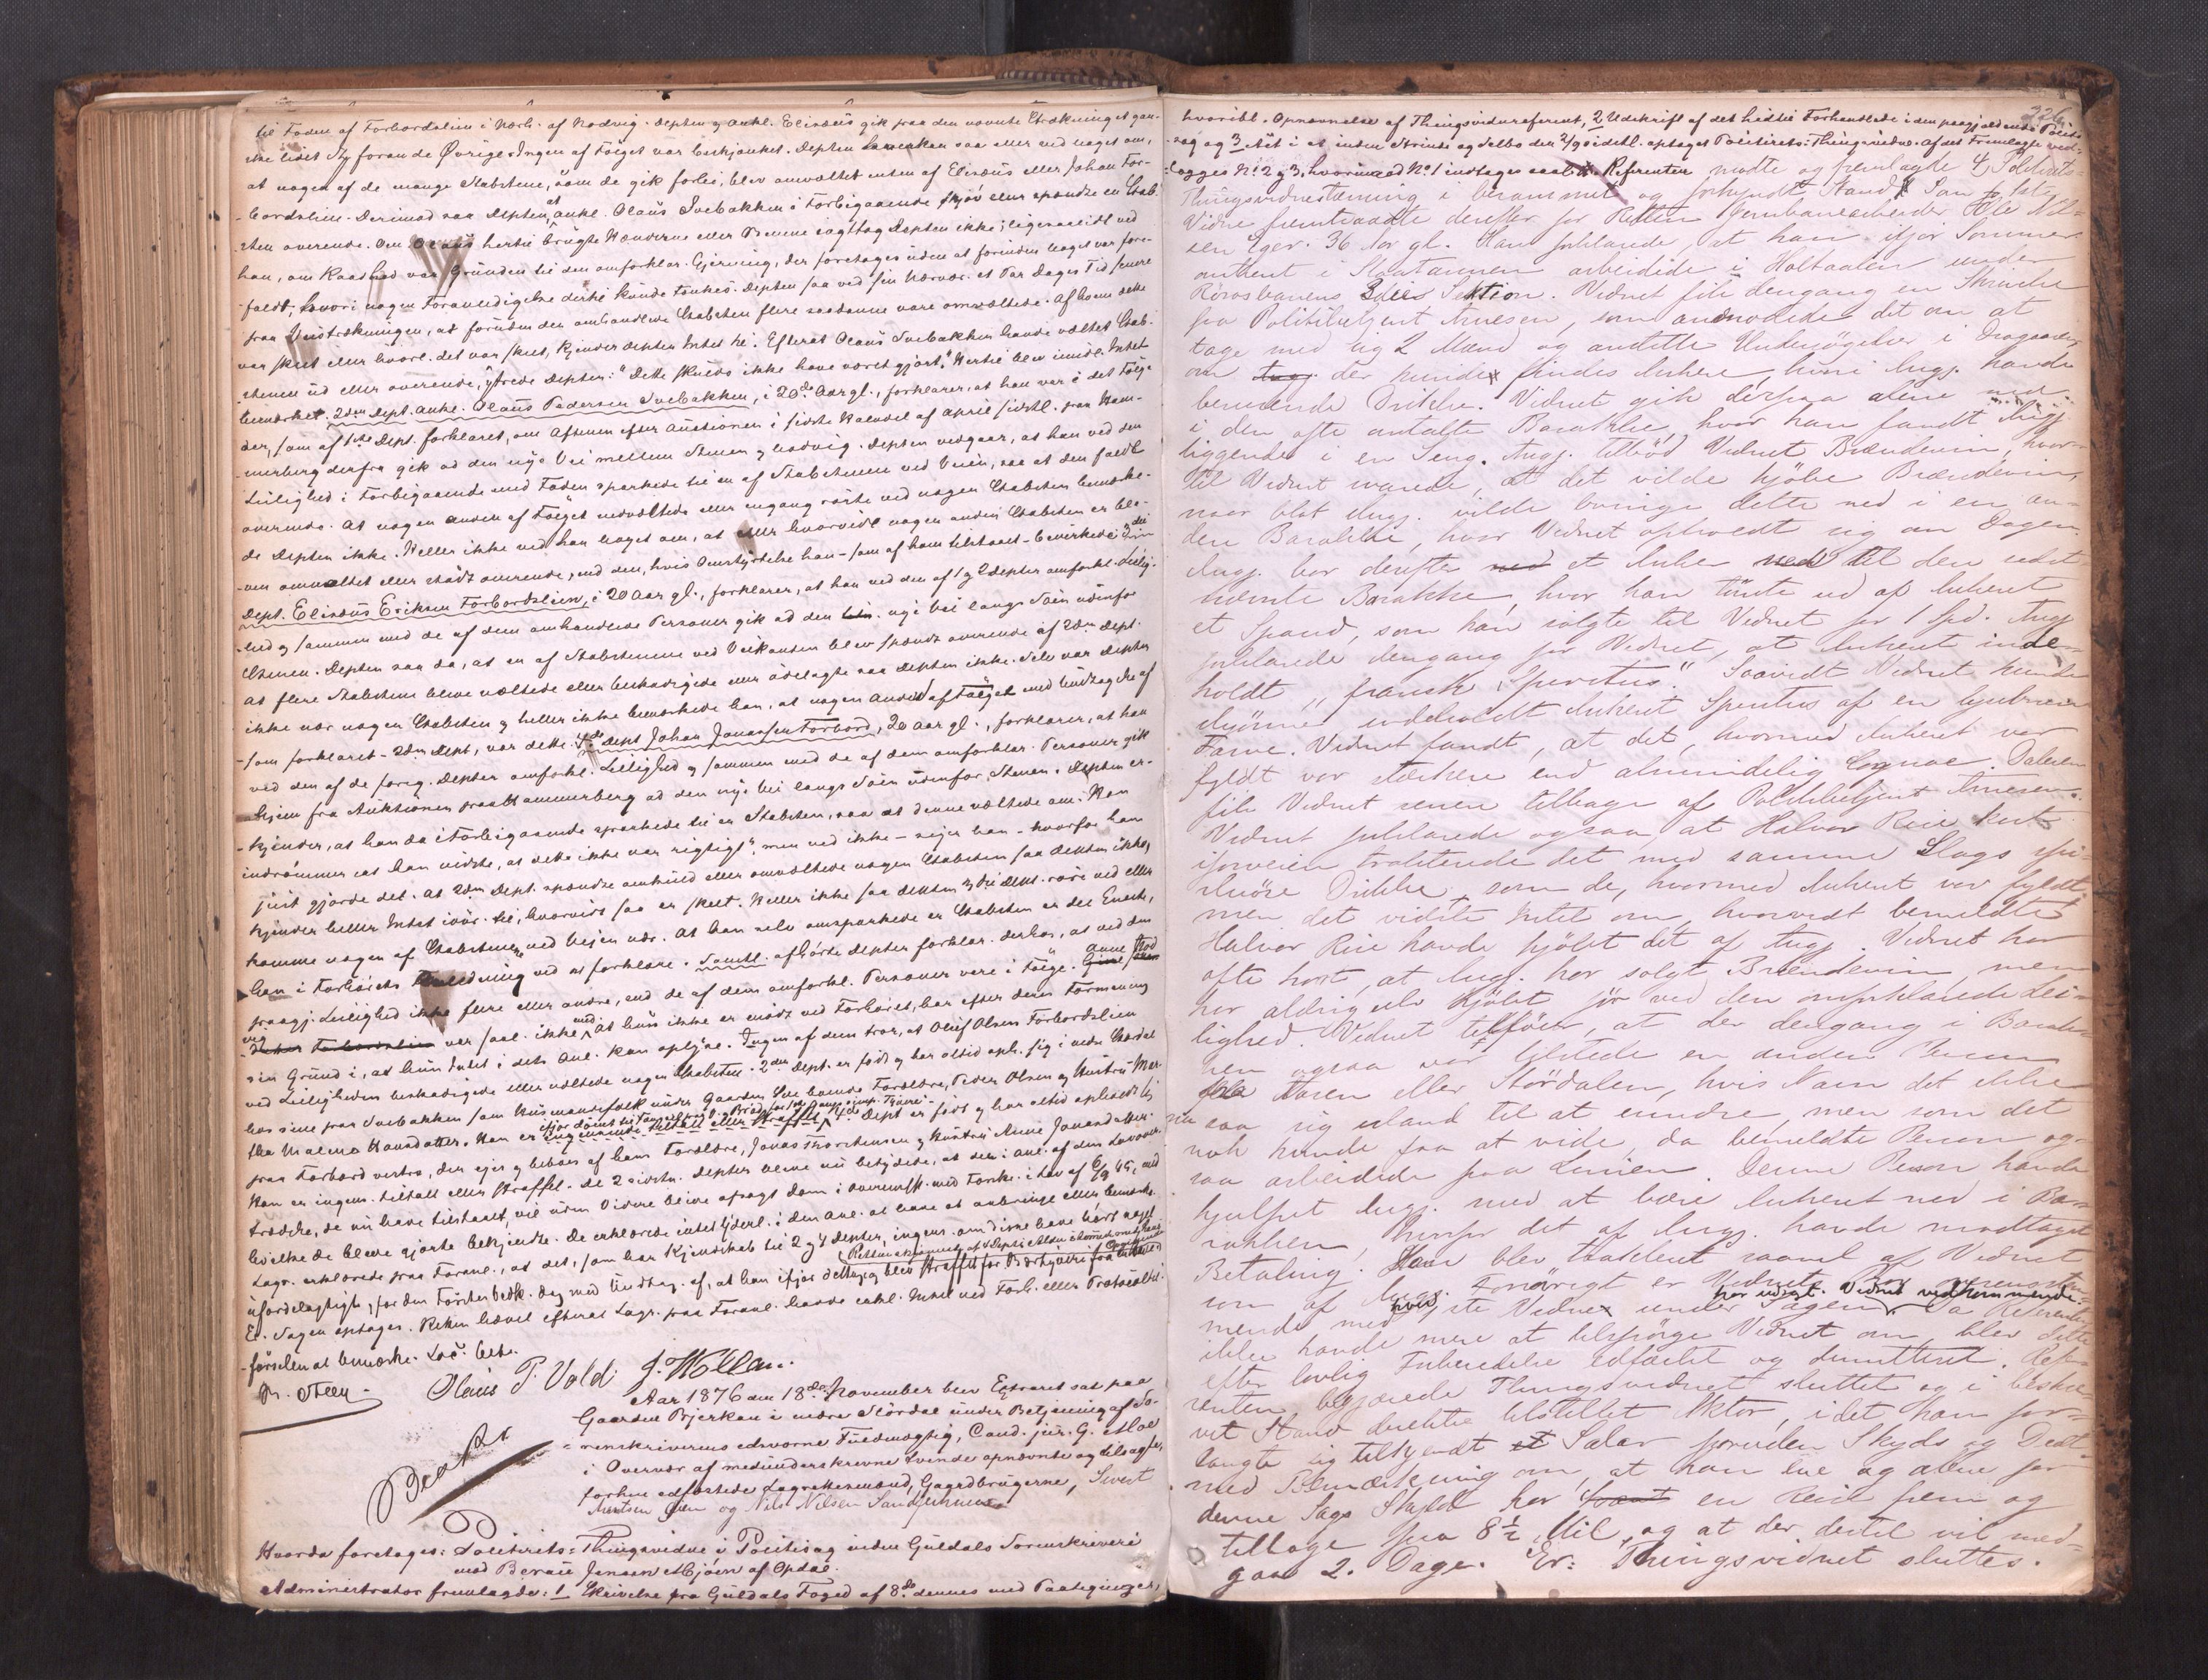 til Foden af Forbordalien i Nærh. af Vodvig. Depten og ankl. Elisæus gik fra den nævnte Strækning et gan-
ske lidet St. foran de Øvrige. Ingen af Følget var beskjænket. Depten saa eller ved noget om,
at nogen af de mange Stabstene, som de gik forbi, blev omvæltet enten af Elisæus eller Johan For-
bordslien. Derimod saa Depten, at anke. Olaus Svebakken i Forbigaaende skjøv eller spændte en Stab-
sten overende. Om Olaus hertil brugte Hænderne eller Benene iagttog Depten ikke; ligesaalidt ved
han, om Kaadhed var Grunden til den omforklar. Gjerning, der foretoges uden at forinden noget var fore-
faldt, hvori nogen Foranledigelse dertil kunde søkes. Depten saa ved sin Nærvær. et Par Dages Tid senere
paa Veistrækningen, at foruden den omhandlede Stabsten flere saadanne vare omvæltede. Af hvem dette
var skeet eller hvorl. det var skeet, kjender Depten Intet til. Efterat Olaus Svebakken havde væltet Stab-
stenen ud eller overende, ytrede Depten: "Dette skulde ikke have været gjort". Hertil blev imidl. Intet
bemærket. 2den Dept. anke. Olaus Pedersen Svebakken, i 20de Aar gl., forklarer, at han var i det Følge
der, som af 1ste Dept. forklaret, om Aftenen efter Auctionen i sidste Halvdel af April sidstl. paa Ham-
merberg derfra gik ad den nye Vei mellem Stenen og Vodvig. Depten vedgaar, at han ved den
Leilighed i Forbigaaende med Foden sparkede til en af Stabstenene ved Veien, saa at den faldt
overende. At nogen anden af Følget nedvæltede eller engang rørte ved nogen Stabsten bemærke-
de Depten ikke. Heller ikke ved han noget om, at eller hvorvidt nogen anden Stabsten er ble-
ven omvæltet eller stødt overende, end den, hvis Omstyrtelse han - som af ham tilstaaet - bevirkede. 3die
Dept. Elisæus Eriksen Forbordslien, i 20 Aar gl., forklarer, at han ved den af 1 og 2 Depter omforkl. Leilig-
hed og sammen med de af dem omhandlede Personer gik ad den nye Vei langs Søen udenfor
Stenen. Depten saa da, at en af Stabstenene ved Veikanten blev spændt overende af 2den Dept.
At flere Stabstene bleve væltede eller beskadigede eller ødelagte saa Depten ikke. Selv var Depten
ikke nær nogen Stabsten og heller ikke bemærkede han, at nogen anden af Følget med Undtagelse af
- som forklaret - 2den Dept, var dette. 4de Dept Johan Jonassen Forbord, 20 Aar gl., forklarer, at han
ved den af de forrig. Depter omforkl. Leilighed og sammen med de af dem omforklar. Personer gik
hjem fra Auktionen paa Hammerberg ad den nye Vei langs Søen udenfor Stenen. Depten er-
kjender, at han da i Forbigaaende sparkede til en Stabsten, saa at denne væltede om. Han
indrømmer at han vidste, at dette ikke var rigtigt, men ved ikke - siger han - hvorfor han
just gjorde det. At 2den Dept. spændte omkuld eller omvæltede nogen Stabsten saa Depten ikke,
kjender heller Intet iøvr. til, hvorvidt saa er skeet. Heller ikke saa Depten 3die Dept. røre ved eller
komme nogen af Stabstenene ved Veien nær. At han selv omsparkede en Stabsten er det Eneste,
han i Forhørets Anledning ved at forklare. Samtl. afhørte Depter forklar. derhos, at ved den
paagj. Leilighed ikke flere eller andre, end de af dem omforkl. Personer vare i Følge. Anne Vod-
vig var saal. ikke med. At hun ikke er mødt ved Forhøret, har efter deres Formening
sin Grund i, at hun Intet i dets Anl. kan oplyse. Ingen af dem tror, at Oluf Olsen Forbordslien
ved Leiligheden beskadigede eller væltede nogen Stabsten. 2den Dept. er født og har altid oph. sig i nedre Størdal
hos sine paa Svebakken som Husmandsfolk under Gaarden boende Forældre, Peder Olsen og Hustru Mar-
tha Malena Hansdatter. Han er ingensinde tiltalt eller straffet. 4de Dept er født og har altid opholdt sig
paa Forbord vestre, der ejes og beboes af hans Forældre, Jonas Thorstensen og Hustru Anne Jonasdatter.
Han er ingens. tiltalt eller straffet. De 2 sidstn. Depter bleve nu betydede, at der i Anl. af den Lovover-
trædelse, de nu have tilstaaet, vil uden Vidner blive afsagt Dom i Overensst. med Forskr. i Lov af 6/9 45, med
hvilke de bleve gjorte bekjendte. De erklærede intet yderl. i den Anl. at have at anbringe eller bemærke.
Lagr. erklærede paa Foranl., at det, som har Kjendskab til 2 og 4 Depter, ingens. om disse have hørt noget
ufordelagtigt, for den Førstes Vedk. dog med Undtag. af, at han ifjor deltog i og blev straffet for
Er. Sagen optages. Retten hævet efterat Lagr. paa Foranl. havde erkl. Intet ved Forh. eller Protocoll-
førselen at bemærke. Loc. Cess.
M. Steen. Olaus P. Vold. J. Hollan.
Aar 1876 den 18de November blev Extraret sat paa
Gaarden Bjerkan i nedre Stördal under Betjening af So-
renskriverens edsvorne Fuldmægtig, Cand. jur. G. Moe
i Overvær af medunderskrevne tvende opnævnte og tilsagte,
forhen edfæstede Lagrettesmænd, Gaardbrugerne, Sivert
og Nils Nilsen
Hvorda foretoges: Politirets-Thingsvidne i Politisag inden Guldals Sorenskriveri
mod Beraü Jensen Mjøen af Opdal.
Administrator fremlagde: 1 Skrivelse fra Guldals Foged af 8de dennes med Paategninger,
226.
hvoribl. Opnævnelse af Thingsvidnereferent, 2 Udskrift af det hidtil Forhandlede i den paagjældende Politi-
sag og 3 et i at inden Strinde og Selbo den 2/9 sidstl. optaget Politirets-Thingsvidne. Af det Fremlagte ved-
lægges No. 2 og 3, hvorimod No. 1 indtages saal. Referenten mødte og fremlagte 4, Politirets-
Thingsvidnestævning i berammet og forkyndt Stand. Som 1ste
Vidne fremtraadte derefter for Retten Jernbanearbeider Ole Nil-
sen 36 Aar gl. Han forklarede, at han ifjor Sommer
omtrent i Slaataannen arbeidede i Holtaalen under
Rörosbanens 3die Sektion. Vidnet fik dengang en Skrivelse
fra Politibetjent Arnesen, som anmodede det om at
tage med sig 2 Mænd og anstille Undersögelser i
om der kunde findes Ankere, hvori Angj. havde
berusende Drikke. Vidnet gik derpaa alene ned
i den ofte omtalte Barakke, hvor han fandt Angj.
liggende i en Seng. Angj. tilböd Vidnet Brændevin, hvor-
til Vidnet svarede, at det vilde kjöbe Brændevin,
naar blot Angj. vilde bringe dette ned i en an-
den Barakke, hvor Vidnet opholdt sig om Dagen.
Angj. bar derefter et Anker ned til den sidst
nævnte Barakke, hvor han tömte ud af Ankeret
et Spand, som han solgte til Vidnet for 1 Spd. Angj.
forklarede dengang for Vidnet, at Ankeret inde-
holdt "fransk Spiritus". Saavidt Vidnet kunde
skjönne indeholdt Ankeret Spiritus af en lysbrun
Farve. Vidnet fandt, at det, hvormed Ankeret var
fyldt var stærkere end almindelig Cognac.
fik Vidnet senere tilbage af Politibetjent Arnesen.
Vidnet forklarede ogsaa, at Halvor Reie kort
iforveien trakterede det med samme Slags spi-
rituöse Drikke, som de, hvormed Ankeret var fyldt,
men det vidste Intet om, hvorvidt bemeldte
Halvor Reie havde kjöbt det af Angj. Vidnet har
ofte hørt, at Angj. har solgt Brændevin, men
har aldrig selv kjöbt för ved den omforklarede Lei-
lighed. Vidnet tilföier, at der dengang i Barak-
ken ogsaa var tilstede en anden Person
fra eller Stördalen, hvis Navn det ikke
nu saa sig istand til at erindre, men som det
nok kunde faa at vide, da bemeldte Person og-
saa arbeidede paa Linien. Denne Person havde
hjulpet Angj. med at bære Ankeret ned i Ba-
rakken, hvorfor det af Angj. havde modtaget
Betaling. Han blev trakteret saavel af Vidnet
som af Angj. Forövrigt er Vidnets Forkl. overensstem-
mende med 1ste Vidne under Sagen, hvad har udsagt. Vidnet vedkommende. Da Referenten
ikke havde mere at tilspörge Vidnet om, blev dette
efter lovlig Forberedelse edfæstet og dimitteret. Refe-
renten begjærede Thingsvidnet sluttet og i beskre-
vet Stand direkte tilstillet Aktor, idet han for-
langte sig tilkjendt Salær foruden Skyds og Diæt
med Bemærkning om, at han ene og alene for
denne Sags Skyld har en Reise frem og
tilbage paa 8 1/2 Mil, og at der dertil vil med-
gaa 2. Dage. Er: Thingsvidnet sluttes.